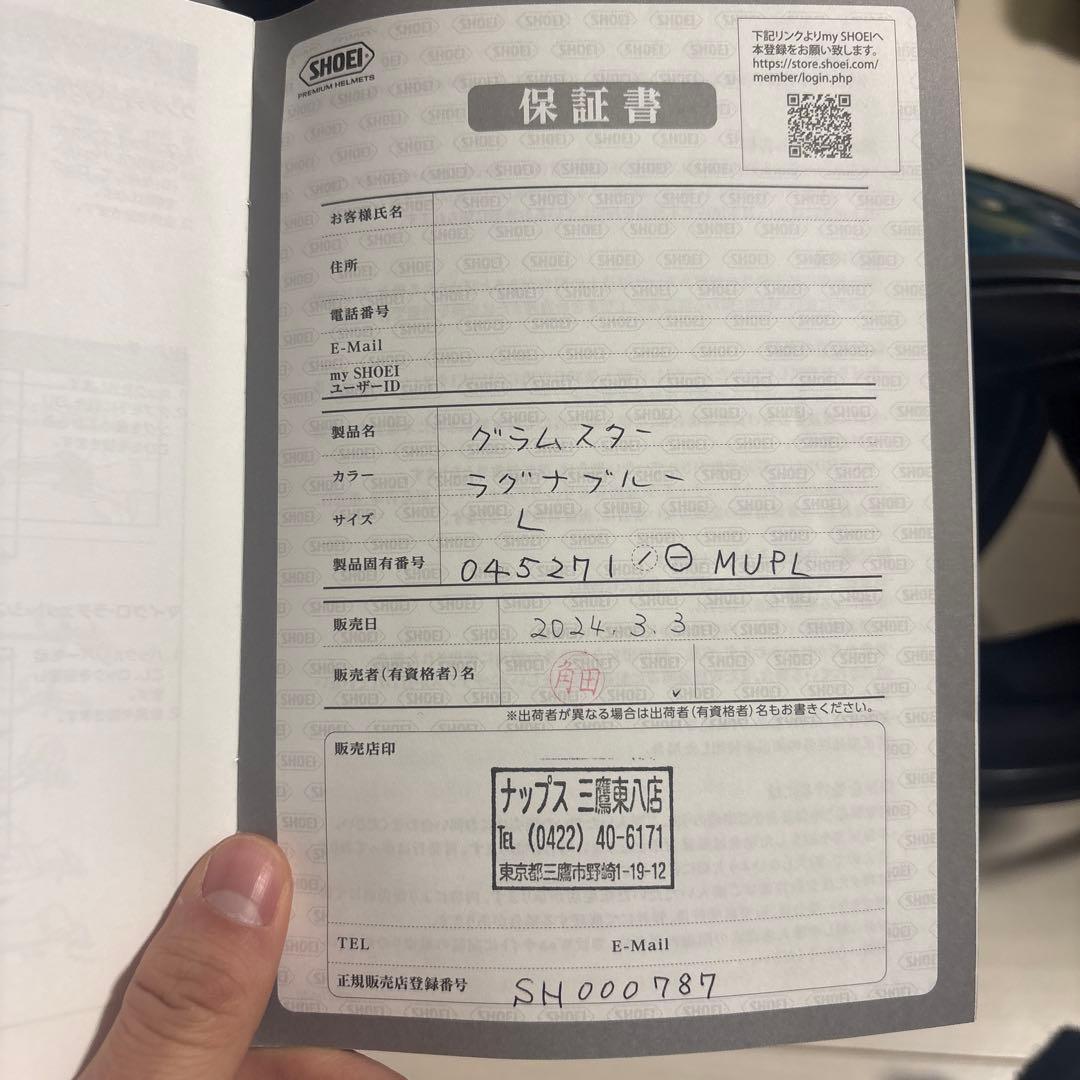 SHOEI
PREMIUM HELMETS
保証書
下記リンクよりmy SHOEIへ
本登録をお願い致します。
https://store.shoei.com/
member/login.php
お客様氏名
住所
電話番号
E-Mail
my SHOEI
ユーザーID
製品名 グラムスター
カラー ラグナブルー
サイズ L
製品固有番号 045271 MUPL
販売日 2024.3.3
販売者(有資格者)名 角田
※出荷者が異なる場合は出荷者(有資格者)名もお書きください。
販売店印
ナップス 三鷹東八店
TEL (0422) 40-6171
東京都三鷹市野崎1-19-12
TEL E-Mail
正規販売店登録番号 SH000787